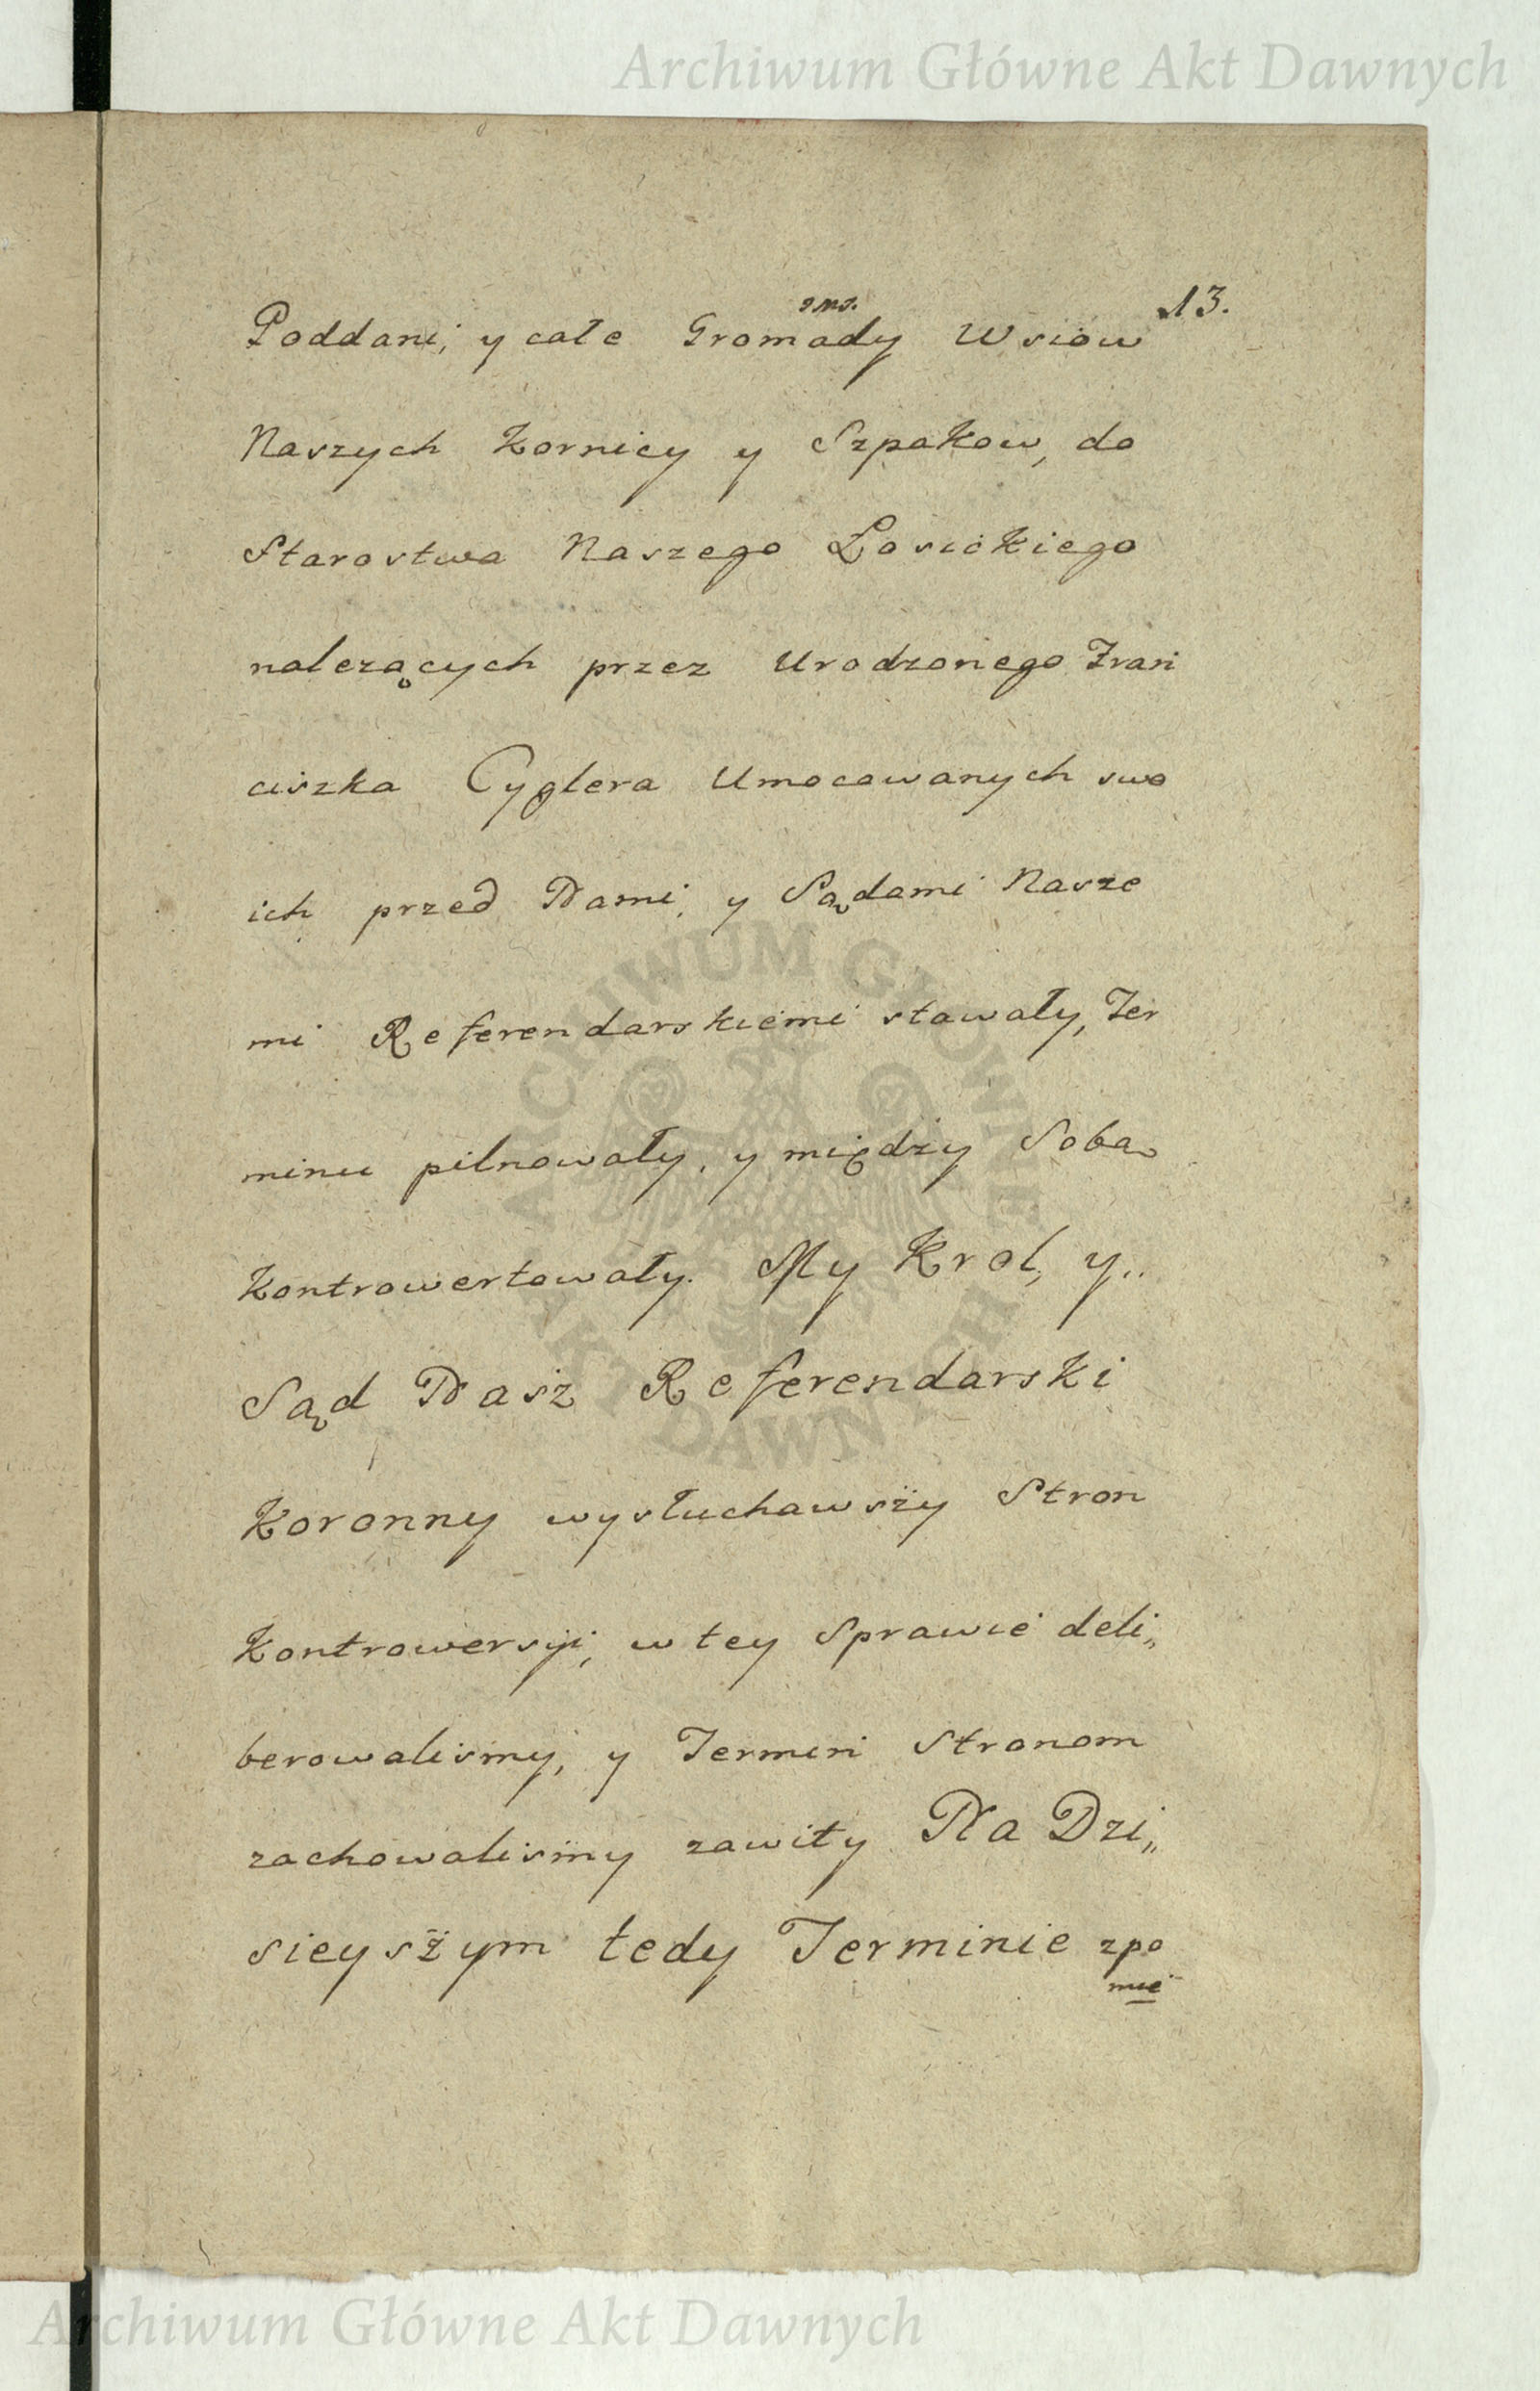 Archiwum Główne Akt Dawnych
13.
Poddani, y całe Gromady Wsiow
Naszych Kornicy y Szpakow, do
Starostwa Naszego Łosickiego
nalezących przez Urodzonego Fran
ciszka Cyglera Umocowanych swo
ich przed Nami, y Sądami Nasze
mi Referendarskiemi stawały, Ter
minu pilnowały, y między Sobą
Kontrowertowały. My Krol, y..
Sąd Nasz Referendarski
Koronny wysłuchawszy Stron
Kontrowersyi, w tey Sprawie deli„
berowalismy, y Termin Stronom
zachowalismy zawity Na Dzi„
sieyszym tedy Terminie zpo
mie
ARCHIWUM GŁÓWNE
AKT DAWNYCH
Archiwum Główne Akt Dawnych